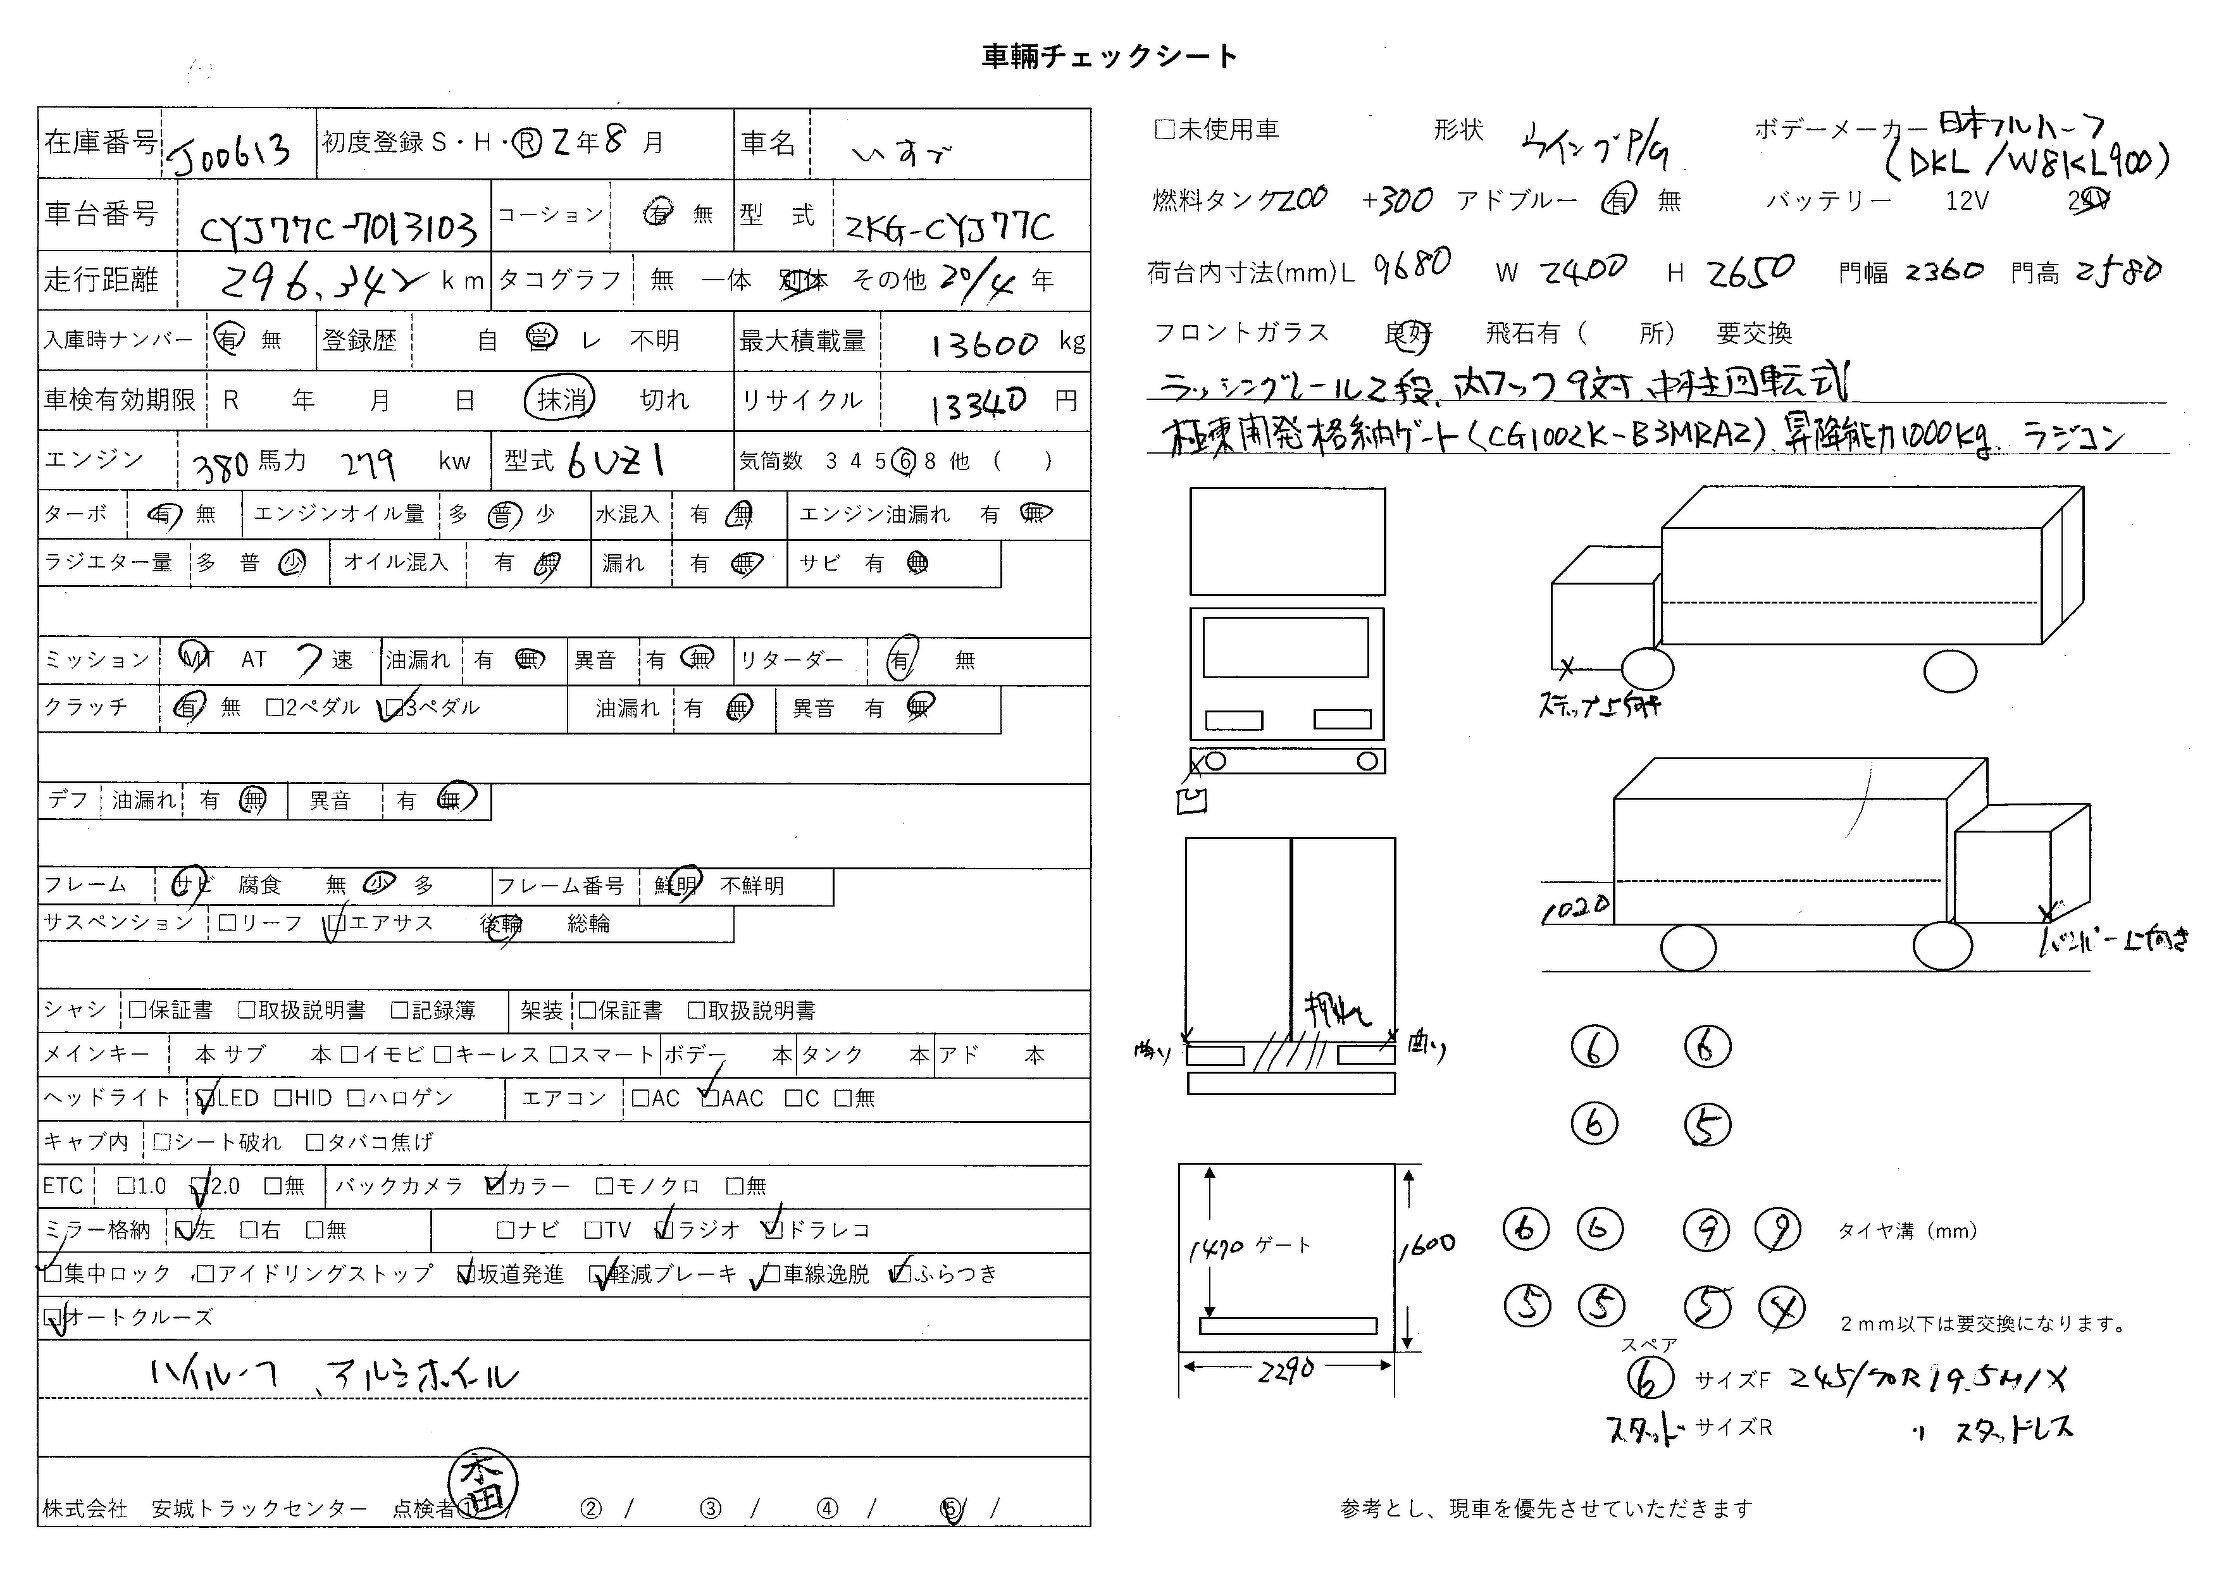 車輌チェックシート
在庫番号 J00613 初度登録 S・H・R 2年 8 月 車名 いすゞ
車台番号 CYJ77C-7013103 コーション 有 無 型 式 2KG-CYJ77C
走行距離 296,342 km タコグラフ 無 一体 別体 その他 20/4 年
入庫時ナンバー 有 無 登録歴 自 営 レ 不明 最大積載量 13600 kg
車検有効期限 R 年 月 日 抹消 切れ リサイクル 13340 円
エンジン 380 馬力 279 kw 型式 6UZ1 気筒数 3 4 5 6 8 他 ( )
ターボ 有 無 エンジンオイル量 多 普 少 水混入 有 無 エンジン油漏れ 有 無
ラジエター量 多 普 少 オイル混入 有 無 漏れ 有 無 サビ 有 無
ミッション MT AT 7 速 油漏れ 有 無 異音 有 無 リターダー 有 無
クラッチ 有 無 □2ペダル □3ペダル 油漏れ 有 無 異音 有 無
デフ 油漏れ 有 無 異音 有 無
フレーム サビ 腐食 無 少 多 フレーム番号 鮮明 不鮮明
サスペンション □リーフ □エアサス 後輪 総輪
シャシ □保証書 □取扱説明書 □記録簿 架装 □保証書 □取扱説明書
メインキー 本 サブ 本 □イモビ □キーレス □スマート ボデー 本 タンク 本 アド 本
ヘッドライト □LED □HID □ハロゲン エアコン □AC □AAC □C □無
キャブ内 □シート破れ □タバコ焦げ
ETC □1.0 □2.0 □無 バックカメラ □カラー □モノクロ □無
ミラー格納 □左 □右 □無 □ナビ □TV □ラジオ □ドラレコ
□集中ロック □アイドリングストップ □坂道発進 □軽減ブレーキ □車線逸脱 □ふらつき
□オートクルーズ
ハイルーフ、アルミホイール
株式会社 安城トラックセンター 点検者① / ② / ③ / ④ / ⑤ /
□未使用車 形状 ウイングP/G ボデーメーカー 日本フルハーフ
(DKL/W8KL900)
燃料タンク 200 +300 アドブルー 有 無 バッテリー 12V 24V
荷台内寸法(mm) L 9680 W 2400 H 2650 門幅 2360 門高 2580
フロントガラス 良好 飛石有 ( 所) 要交換
ラッシングレール2段、内フック9対、中柱回転式
極東開発格納ゲート(CG1002K-B3MRA2)、昇降能力1000kg、ラジコン
ステップ上向き
凹
1020
バンパー上向き
押サレ
曲り
曲り
6 6
6 5
6 6 9 9 タイヤ溝（mm）
5 5 5 4
2mm以下は要交換になります。
1470 ゲート 1600
2290
スペア
6 サイズF 245/70R19.5 MIX
スタッド サイズR 〃 スタッドレス
参考とし、現車を優先させていただきます